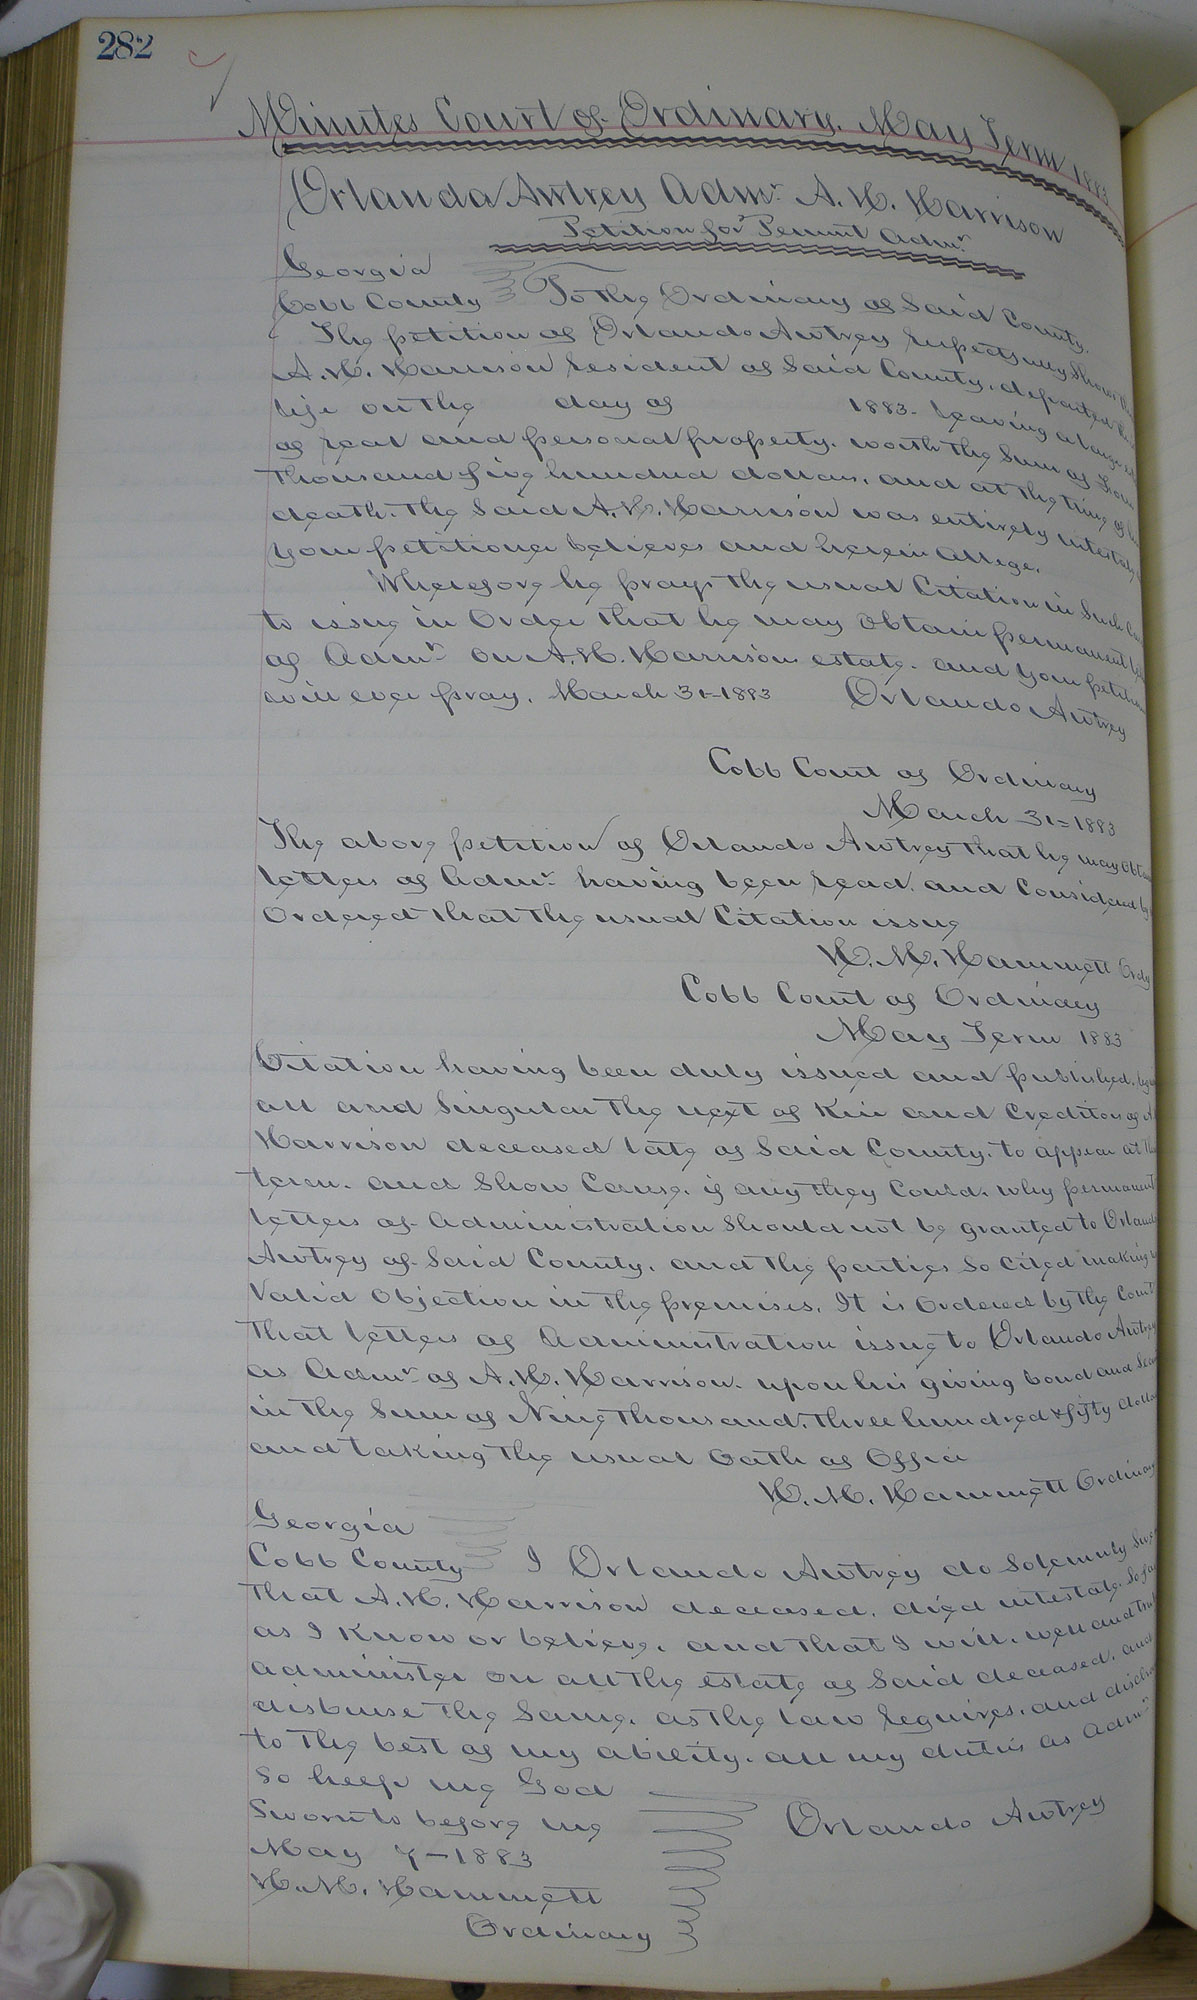 282
Minutes Court of Ordinary. May Term 1883
Orlando Awtrey Admr. A. H. Harrison
Petition for Permnt Admr.
Georgia
Cobb County To the Ordinary of Said County.
The petition of Orlando Awtrey respectfully Shows
A. H. Harrison resident of Said County, departed
life on the day of 1883. leaving a large
of real and personal property. worth the Sum of
thousand five hundred dollars, and at the time of
death. the Said A. H. Harrison was entirely intestate
your petitioner believes and herein allege.
Wherefore he prays the usual Citation in Such
to issue in Order that he may Obtain permanent
of Admr. on A. H. Harrison estate. and your
will ever pray. March 31-1883 Orlando Awtrey
Cobb Court of Ordinary
March 31=1883
The above petition of Orlando Awtrey that he may
letters of Admr. having been read. and Considered
Ordered that the usual Citation issue
H. M. Hammett Ordy
Cobb Court of Ordinary
May Term 1883
Citation having been duly issued and published.
all and Singular the next of Kin and Creditors of
Harrison deceased late of Said County. to appear at
term. and Show Cause. if any they Could. why permanent
letters of Administration Should not be granted to Orlando
Awtrey of Said County. and the parties So Cited making
Valid Objection in the premises. It is Ordered by the Court
that letters of Administration issue to Orlando Awtrey
as Admr. of A. H. Harrison. upon his giving bond and
in the Sum of Nine thousand. three hundred & fifty
and taking the usual Oath of Office
H. M. Hammett Ordinary
Georgia
Cobb County I Orlando Awtrey do Solemnly
that A. H. Harrison deceased. died intestate. So far
as I Know or believe. and that I will. well and
administer on all the estate of Said deceased. and
disburse the Same. as the law requires. and
to the best of my ability. all my duties as Admr.
So help me God
Sworn to before me Orlando Awtrey
May 7-1883
H. M. Hammett
Ordinary